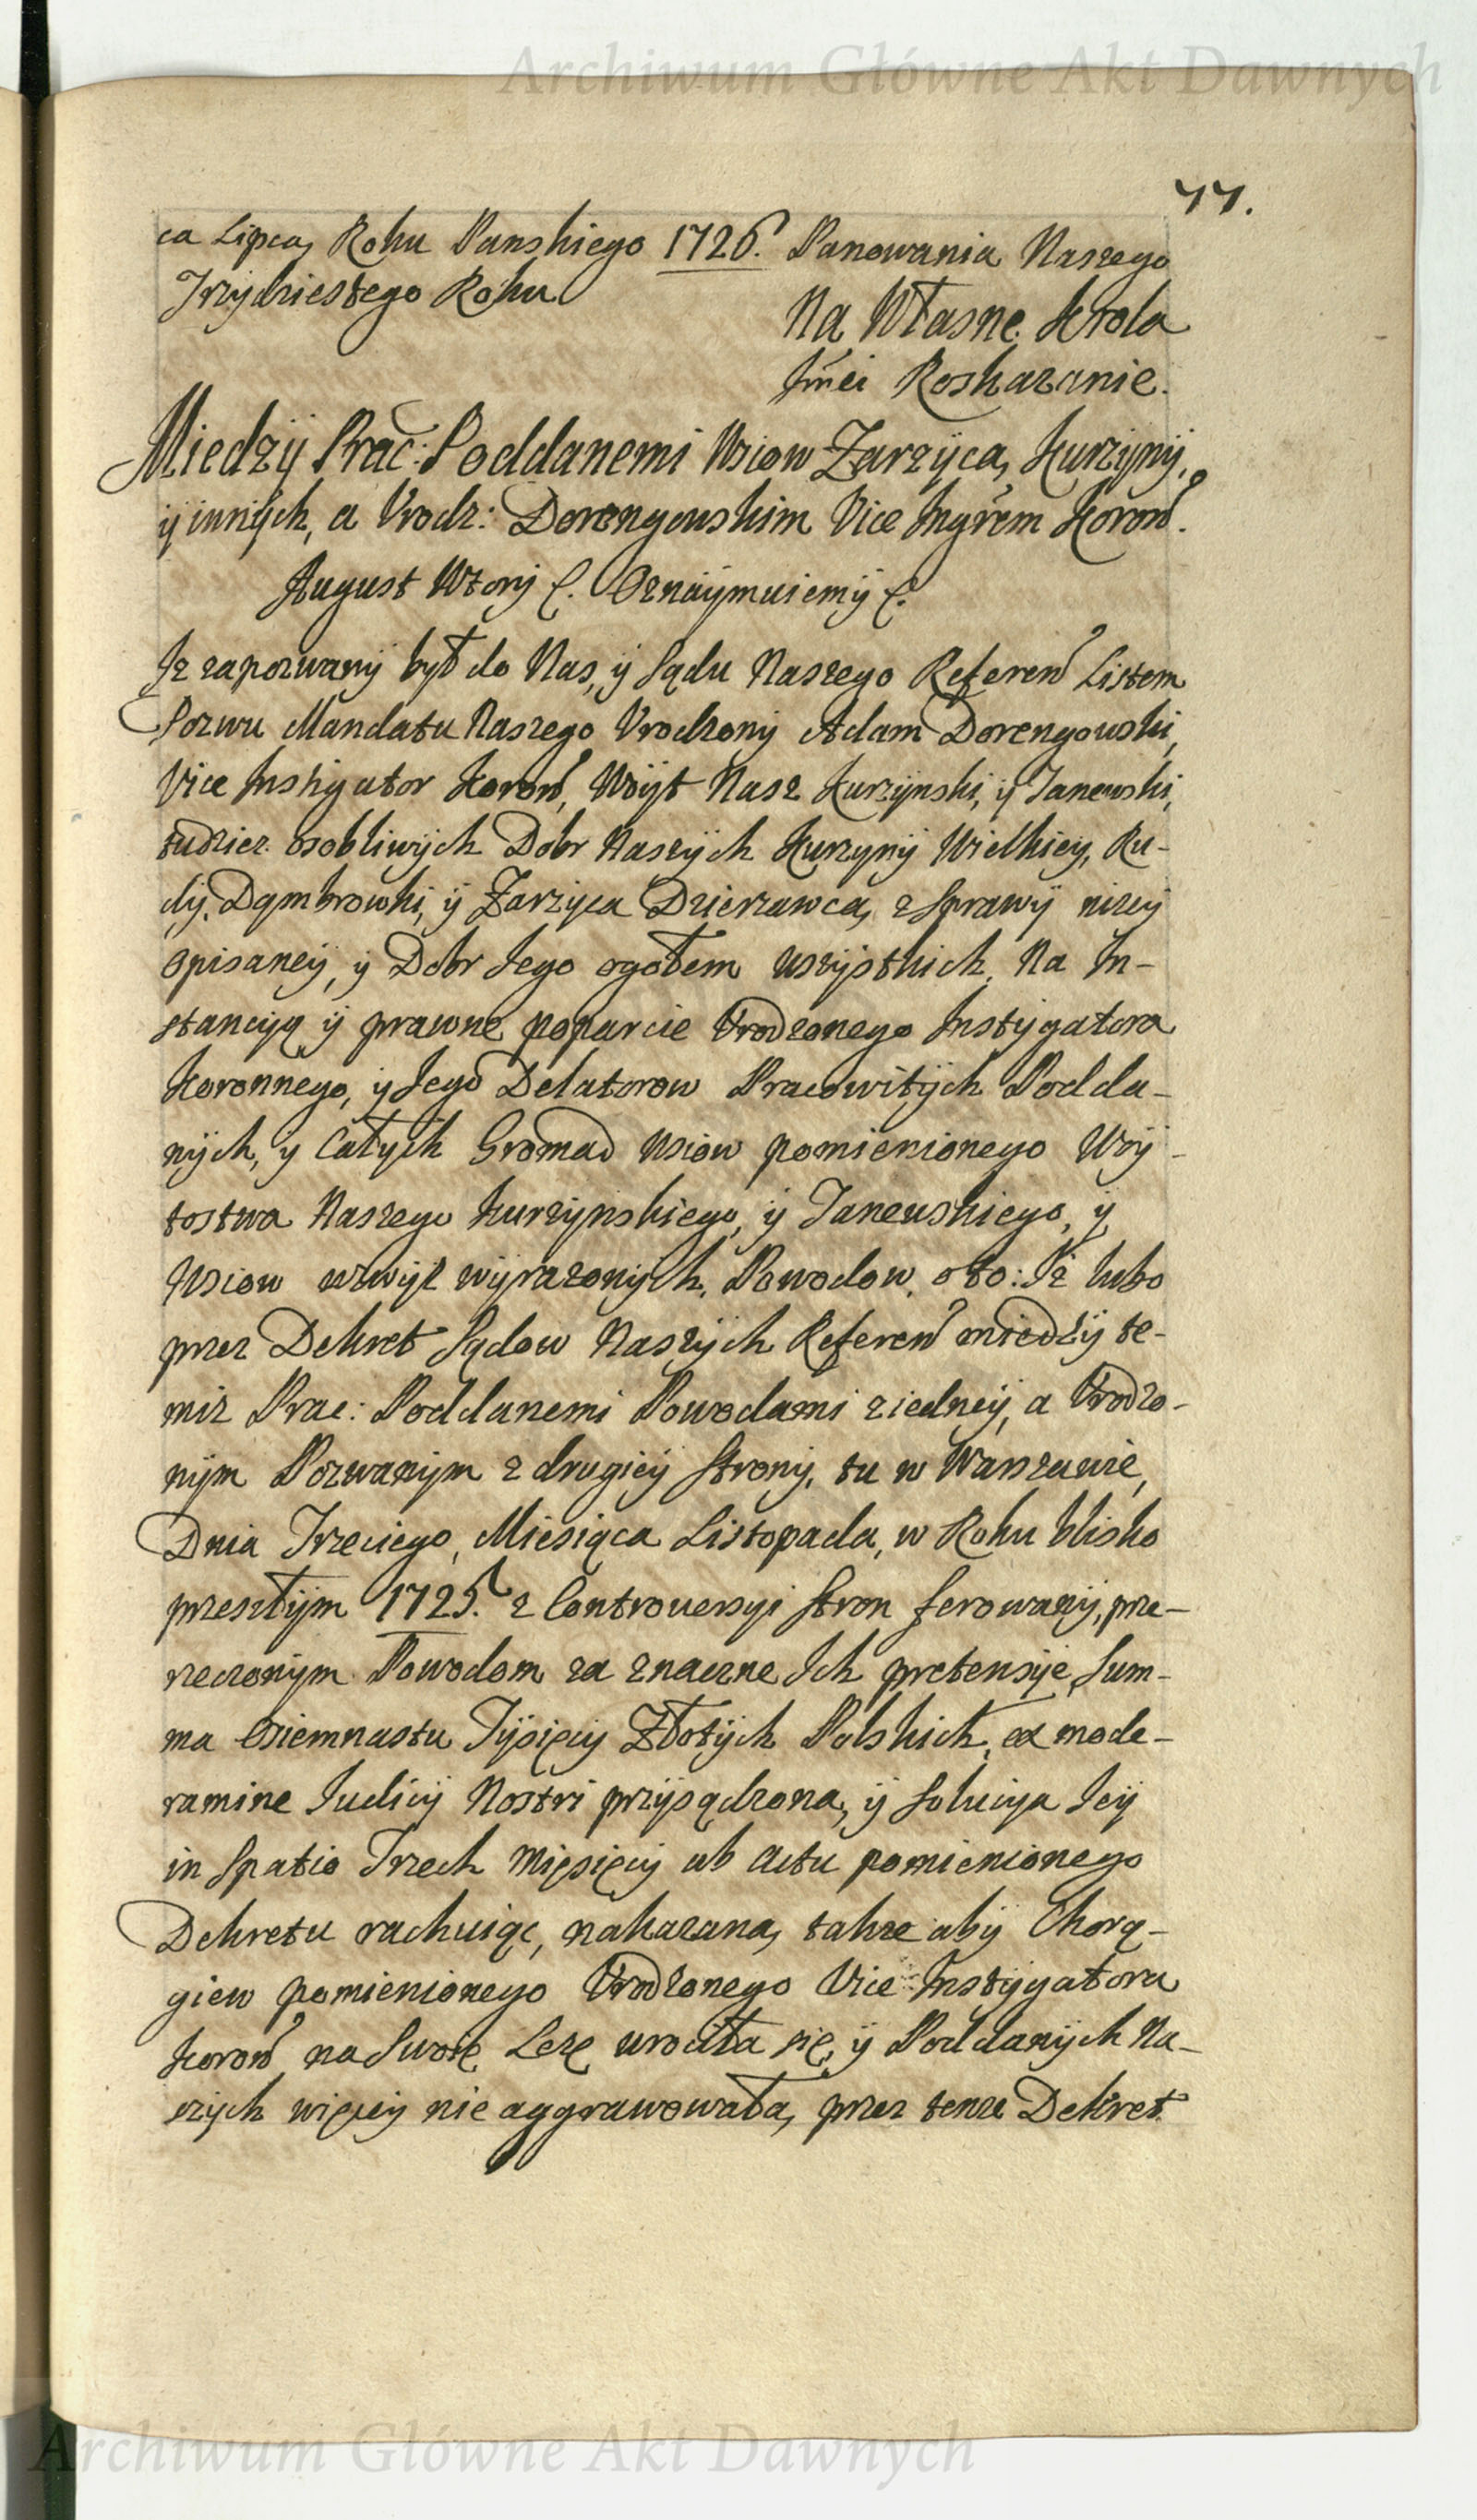 Archiwum Główne Akt Dawnych
77.
ca Lipca, Roku Panskiego 1726. Panowania Naszego
Trzydziestego Roku
Na Własne Krola
Jmci Roskazanie.
Miedzÿ Prac: Poddanemi Wsiow Zarzÿca, Kurzÿnÿ,
ÿ innÿch, a Vrodz: Dorengowskim Vice Ingrem Koron.
August Wtorÿ &. Oznaÿmuiemÿ &.
Iz zapozwanÿ był do Nas, ÿ Sądu Naszego Referen Listem
Pozwu Mandatu Naszego Vrodzonÿ Adam Dorengowski,
Vice Instigator Koron, Woÿt Nasz Kurzÿnski, ÿ Janewski,
tudziez osobliwÿch Dobr Naszÿch Kurzynÿ Wielkiey, Ru-
dÿ, Dąmbrowki, ÿ Zarzÿca Dzierzawca, z Sprawÿ nizeÿ
opisaneÿ, ÿ Dobr Jego ogołem wszÿstkich, Na In-
stancÿą ÿ prawne poparcie Vrodzonego Instÿgatora
Koronnego, ÿ Jego Delatorow Pracowitÿch Podda-
nÿch, y Całÿch Gromad Wsiow pomienionego Woÿ-
tostwa Naszego Kurzÿnskiego, ÿ Janewskiego, ÿ
Wsiow wzwÿz wÿrazonÿch, Powodow, oto: Iz lubo
przez Dekret Sądow Naszÿch Referen miedzÿ te-
miz Prac: Poddanemi Powodami z iedneÿ, a Vrodzo-
nÿm Pozwanÿm z drugieÿ Stronÿ, tu w Warszawie,
Dnia Trzeciego, Miesiąca Listopada, w Roku blisko
przeszłÿm 1725. z Controversÿi Stron ferowanÿ, prze-
rzeczonÿm Powodom za znaczne Ich pretensÿe, Sum-
ma Osiemnastu Tÿsięcÿ Złotÿch Polskich, ex mode-
ramine Iudicÿ Nostri przÿsądzona, ÿ Solucÿa Jeÿ
in Spatio Trzech Mięsięcÿ ab actu pomienionego
Dekretu rachuiąc, nakazana, takze abÿ Chorą-
giew pomienionego Vrodzonego Vice Instÿgatora
Koron na Swoię Lezę wrociła się, ÿ Poddanÿch Na-
szÿch więceÿ nie aggrawowała, przez tenze Dekret
Archiwum Główne Akt Dawnych